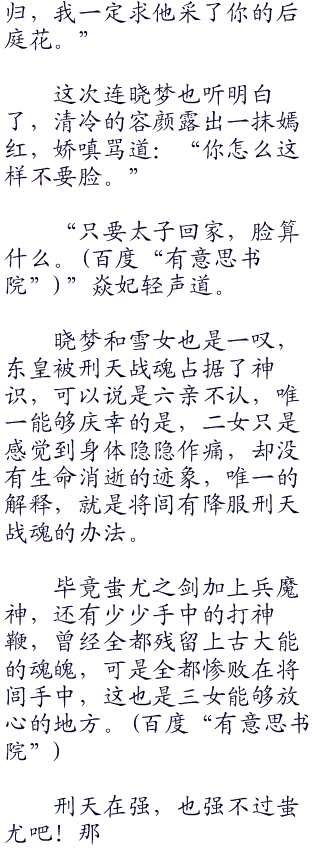 归，我一定求他采了你的后
庭花。”
这次连晓梦也听明白
了，清冷的容颜露出一抹嫣
红，娇嗔骂道：“你怎么这
样不要脸。”
“只要太子回家，脸算
什么。(百度“有意思书
院”)”焱妃轻声道。
晓梦和雪女也是一叹，
东皇被刑天战魂占据了神
识，可以说是六亲不认，唯
一能够庆幸的是，二女只是
感觉到身体隐隐作痛，却没
有生命消逝的迹象，唯一的
解释，就是将闾有降服刑天
战魂的办法。
毕竟蚩尤之剑加上兵魔
神，还有少少手中的打神
鞭，曾经全都残留上古大能
的魂魄，可是全都惨败在将
闾手中，这也是三女能够放
心的地方。(百度“有意思书
院”)
刑天在强，也强不过蚩
尤吧！那